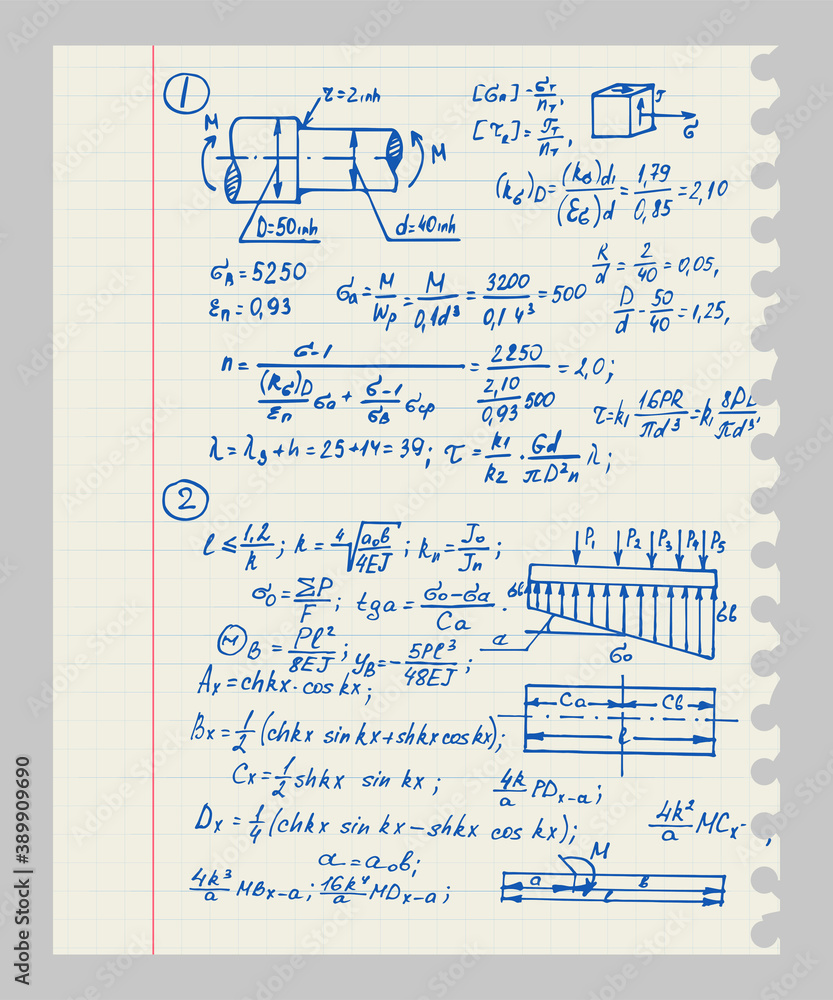 1
r = 2 inh
M
M
D = 50 inh
d = 40 inh
σ
[σn] = σт/nт,
[τ2] = 𝒯т/nт,
(kσ)D = (kσ)d1/(Ɛσ)d = 1,79/0,85 = 2,10
σв = 5250
Ɛп = 0,93
σa = M/Wp = M/0,1d³ = 3200/0,1 4³ = 500
R/d = 2/40 = 0,05,
D/d - 50/40 = 1,25,
n = σ-1/((kσ)D/Ɛп σa + σ-1/σв σcp) = 2250/(2,10/0,93 500) = 2,0;
τ = k1 16PR/πd³ = k1 8PD/πd³
λ = λ3 + h = 25 + 14 = 39; τ = k1/k2 · Gd/πD²n λ;
2
l ≤ 1,2/k; k = ⁴√(a₀b/4EJ); kn = J₀/Jn;
P1 P2 P3 P4 P5
σ₀ = ΣP/F; tga = σ₀-σa/Ca.
σв
a
σ₀
(M) B = Pl²/8EJ; yB = - 5Pl³/48EJ;
Ax = chkx · cos kx;
Ca Cb
l
Bx = 1/2 (chkx sin kx + shkx cos kx);
Cx = 1/2 shkx sin kx;
4k/a PDx-a;
Dx = 1/4 (chkx sin kx - shkx cos kx);
4k²/a MCx-,
a = a₀b;
M
4k³/a MBx-a; 16k⁴/a MDx-a;
a b
l
Adobe Stock | 389909690
Adobe Stock